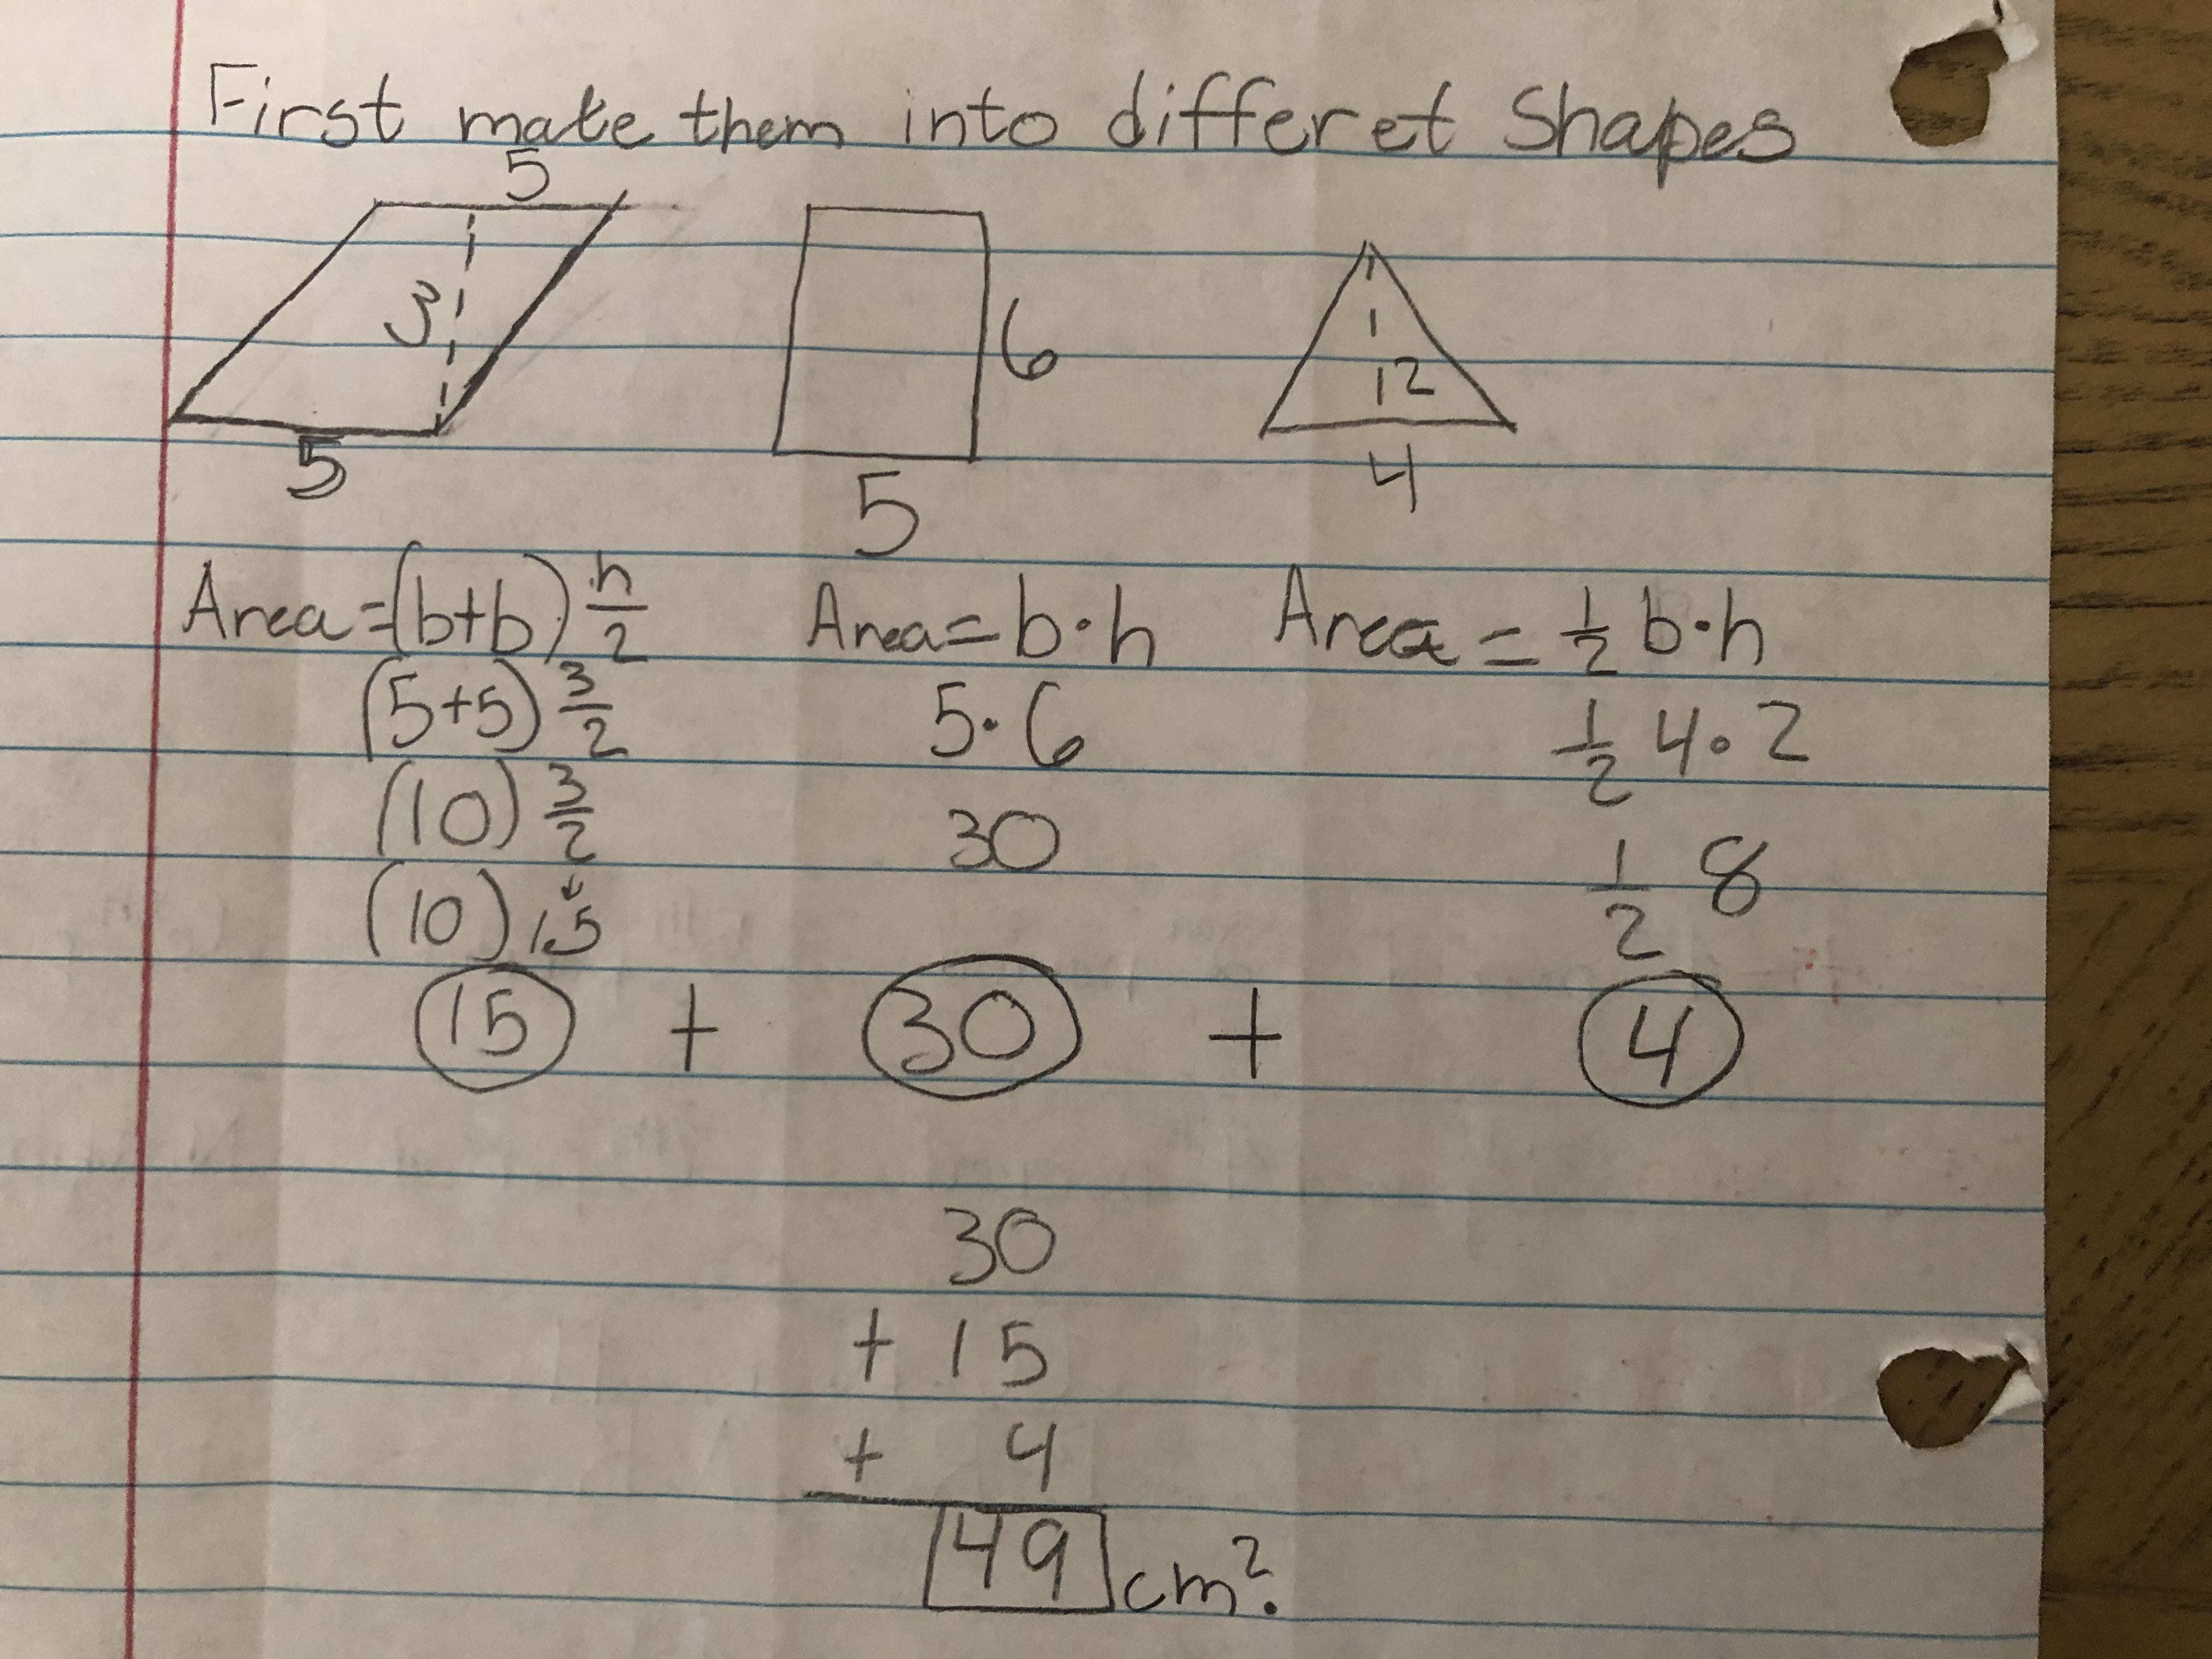 First make them into differet Shapes
5
3
5
6
5
2
4
Area=(b+b) h/2
(5+5) 3/2
(10) 3/2
(10) 1.5
15
Area=b·h
5·6
30
+ 30 +
Area = 1/2 b·h
1/2 4·2
1/2 8
4
30
+ 15
+ 4
49 cm².